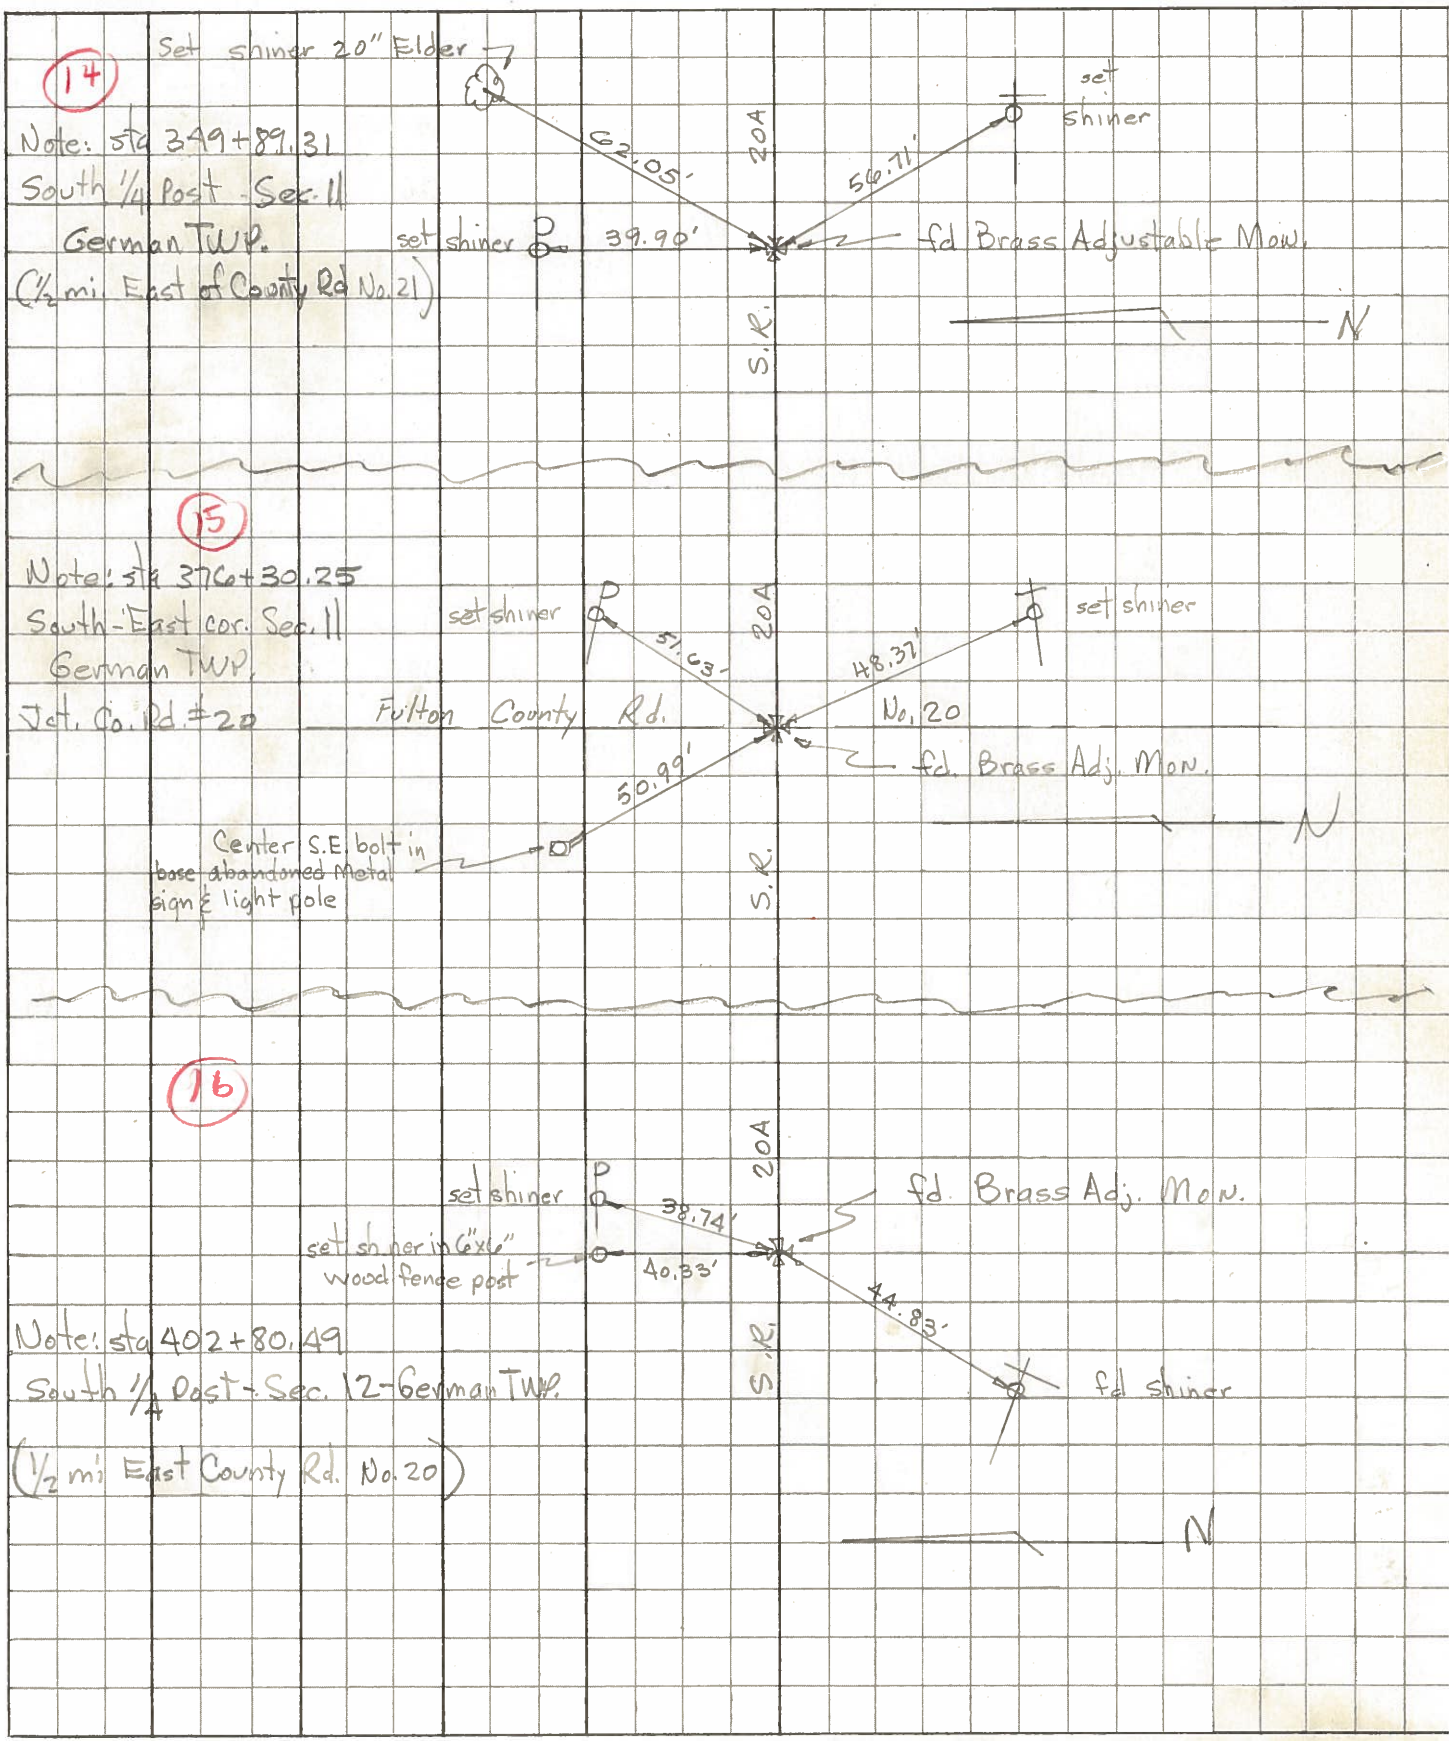 14
Set shiner 20" Elder
62.05'
20A
56.71'
set
shiner
Note: sta 349+89.31
South 1/4 Post - Sec. 11
German TWP.
(1/2 mi. East of County Rd No. 21)
set shiner
P
39.90'
fd Brass Adjustable Mon.
S.R.
N
15
Note: sta 376+30.25
South-East cor. Sec. 11
German TWP.
Jct. Co. Rd. #20
set shiner
P
51.63'
20A
48.37'
set shiner
Fulton County Rd. No. 20
fd. Brass Adj. Mon.
50.99'
Center S.E. bolt in
base abandoned Metal
sign & light pole
S.R.
N
16
20A
set shiner
P
38.74'
fd. Brass Adj. Mon.
set shiner in 6"x6"
wood fence post
40.33'
44.83'
Note: sta 402+80.49
South 1/4 Post - Sec. 12 - German TWP.
(1/2 mi East County Rd. No. 20)
S.R.
fd shiner
N